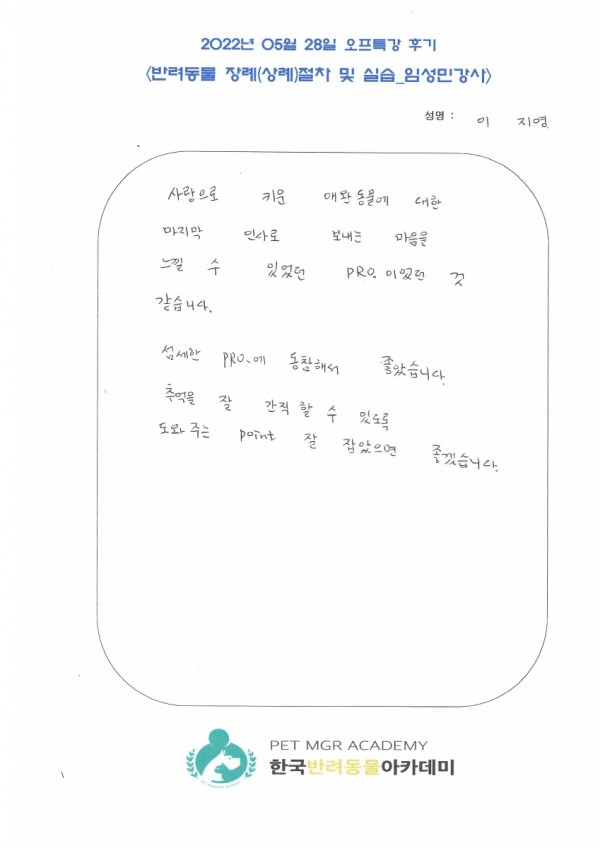 2022년 05월 28일 오프특강 후기
<반려동물 장례(상례)절차 및 실습_임성민강사>
성명 : 이 지영
사랑으로 키운 애완동물에 대한
마지막 인사로 보내는 마음을
느낄 수 있었던 PRO.이었던 것
같습니다.
섬세한 PRO.에 동참해서 좋았습니다.
추억을 잘 간직 할 수 있도록
도와주는 point 잘 잡았으면 좋겠습니다.
PET MGR ACADEMY
한국반려동물아카데미